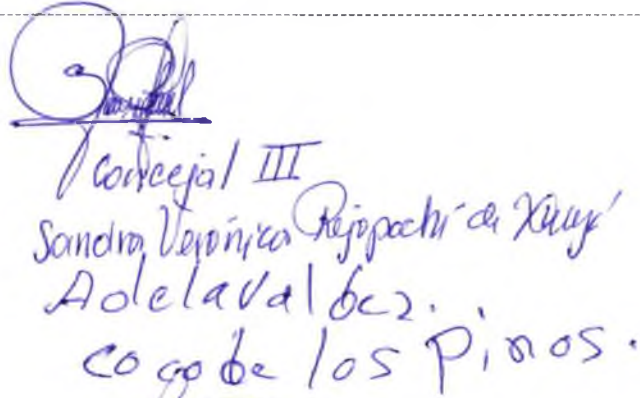 Concejal III
Sandra Verónica Rejopachi de Xuyá
Adelaval dez.
cocode los Pinos.